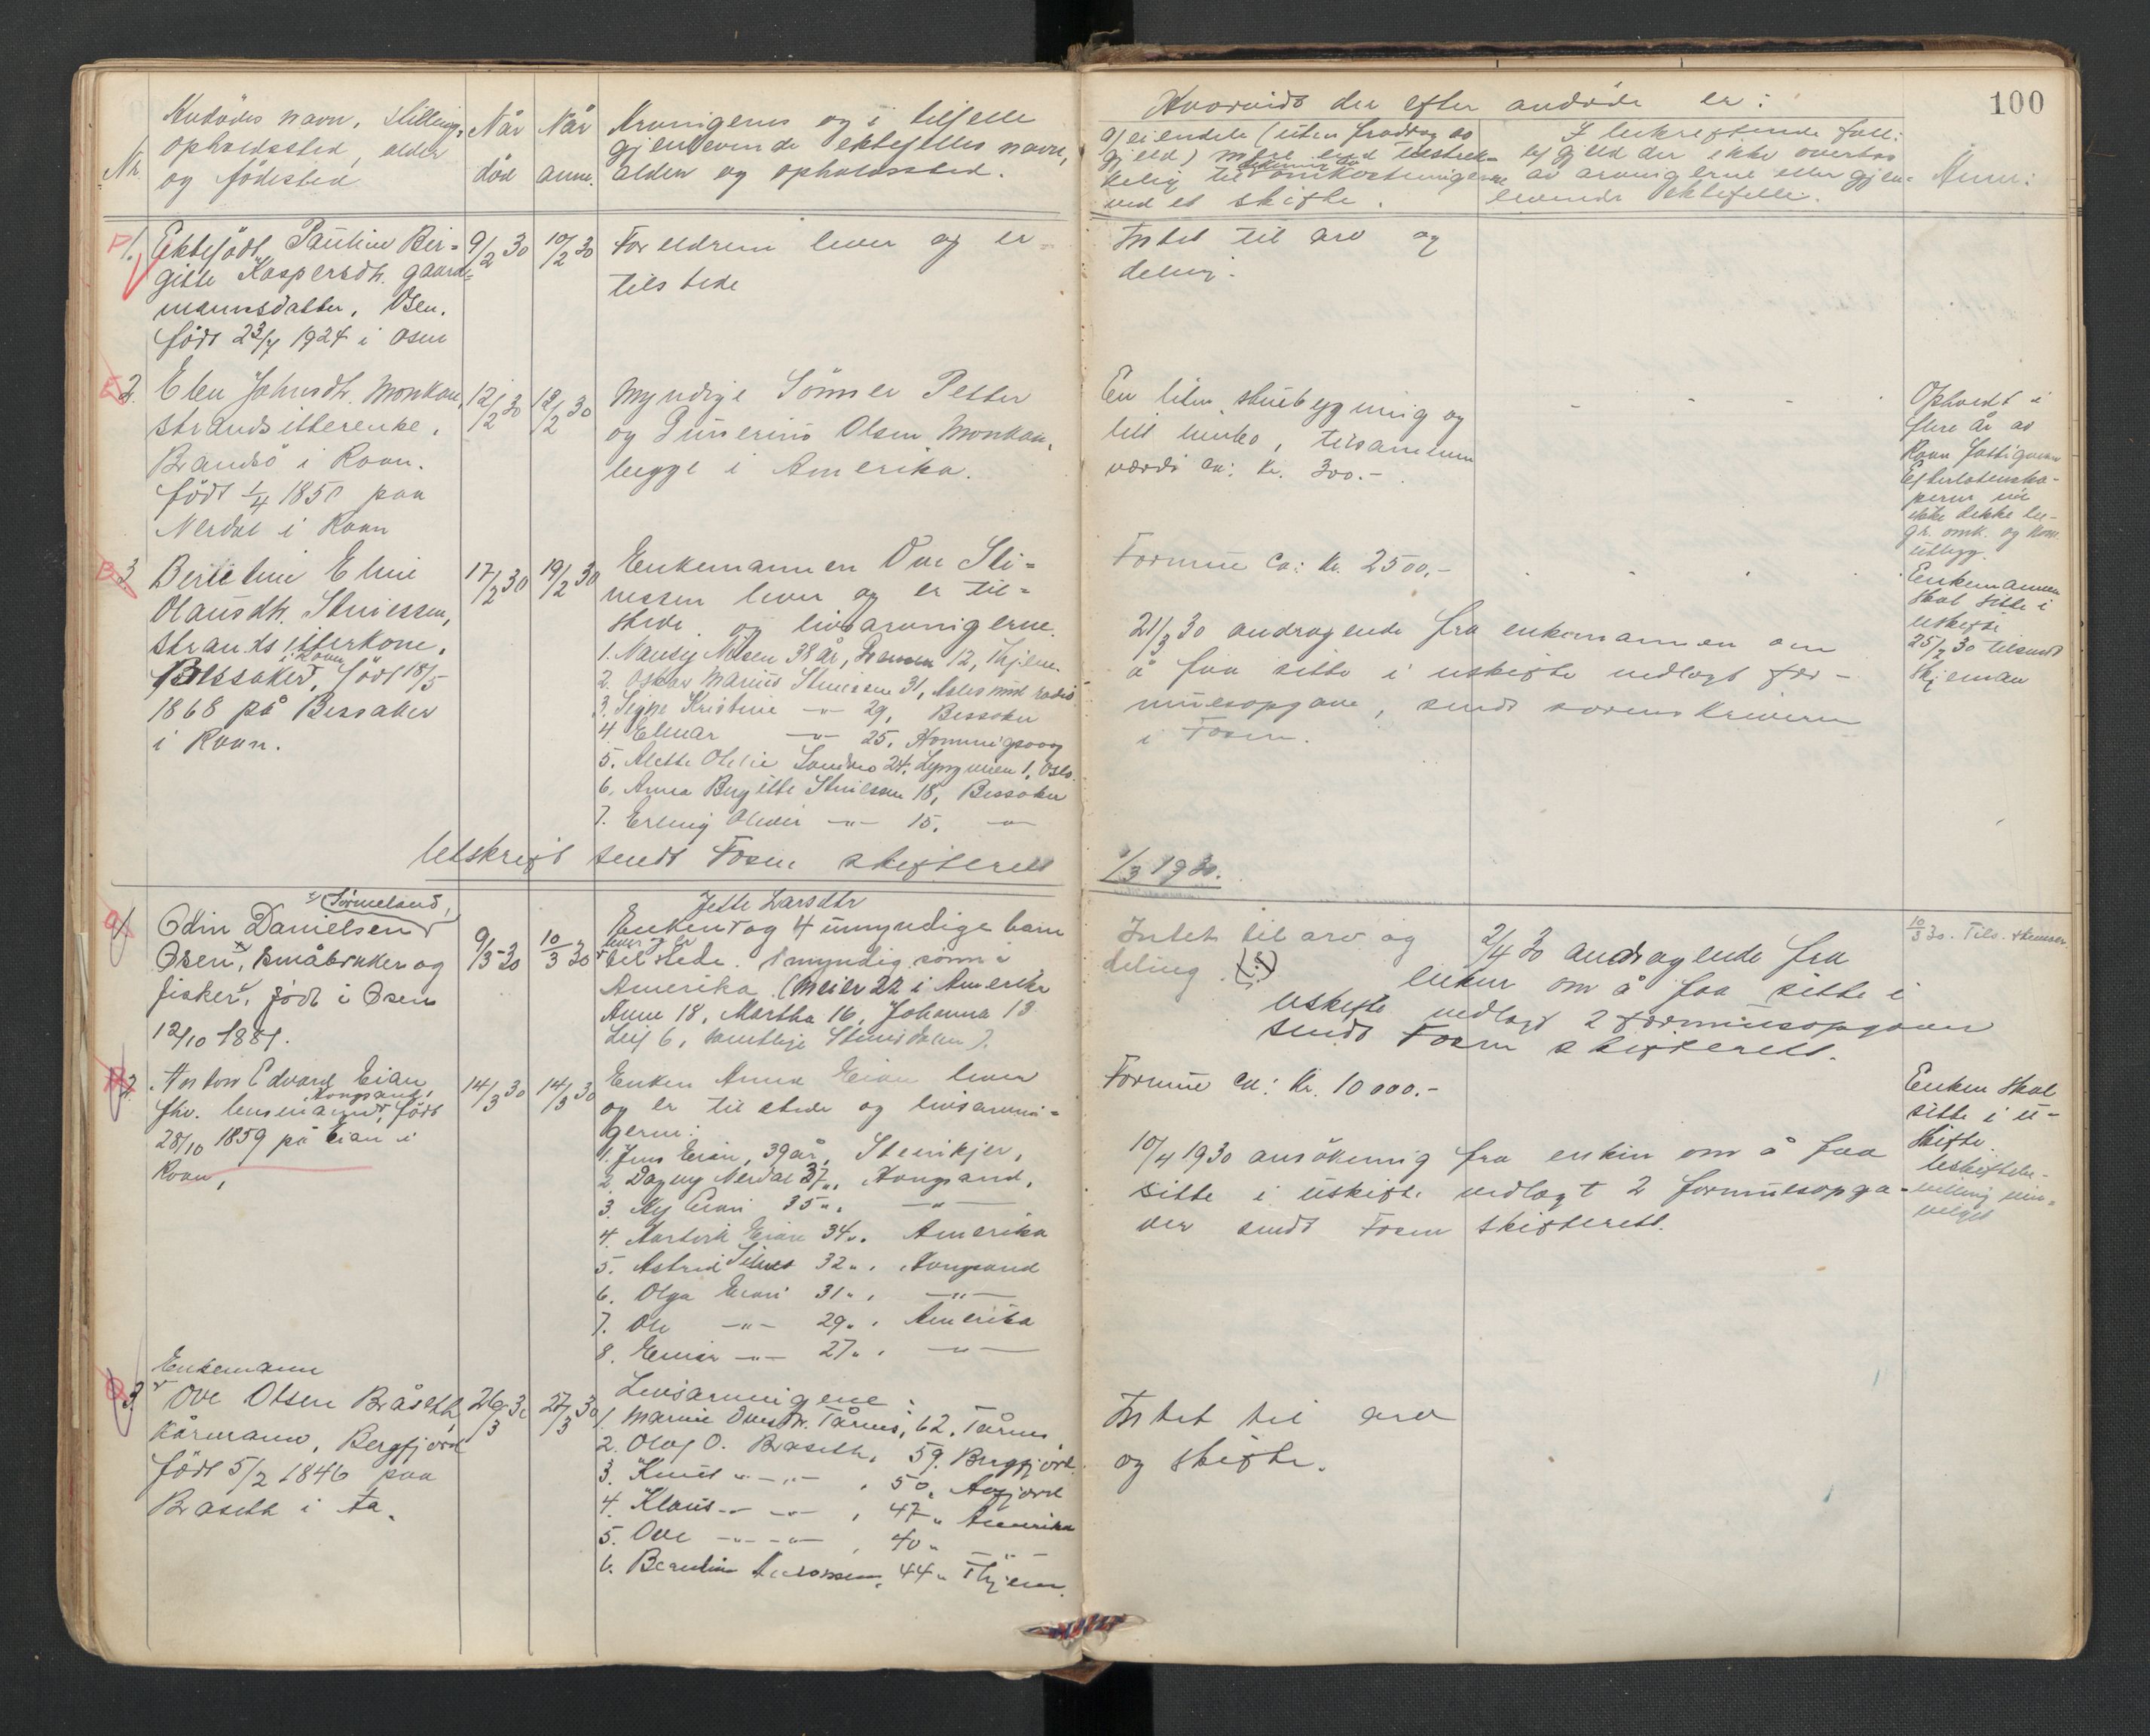 100
Nr.
Avdødes navn, stilling,
opholdssted, alder
og fødested
Når
død
Når
anm.
Arvingenes og i tilfelle
gjenlevende ektefelles navn,
alder og opholdssted.
Hvorvidt der efter avdøde er:
a) eiendele (uten fradrag av
gjeld) mere end tilstrek-
kelig til omkostningerne
ved et skifte.
I bekreftende fall:
b) gjeld der ikke overtas
av arvingerne eller gjen-
levende ektefelle.
Anm:
1. Ektefødt Pauline Bir-
gitte Kaspersdtr. gaard-
mannsdatter, Osen.
født 23/7 1924 i Osen
9/2 30
10/2 30
Foreldrene lever og er
tilstede
Intet til arv og
deling.
2. Elen Johnsdtr. Monkan,
strandsitterenke,
Brandsø i Roan.
født 1/4 1850 paa
Nerdal i Roan
12/2 30
13/2 30
Myndige Sønner Petter
og Olsen Monkan,
begge i Amerika.
En liten stuebygning og
litt innbo, tilsammen
værdi ca: kr. 300.-
Opholdt i
flere år av
Roan
ikke dekke be-
gr. omk. og kom.
utlegg.
3 Eline
Olausdtr. Stinessen,
strandsitterkone,
i Roan
Bessaker, født 18/5
1868 på Bessaker
i Roan.
17/2 30
19/2 30
Enkemannen Ove Sti-
nessen lever og er til-
stede og livsarvingerne.
1. Nansy Nilsen 38 år, 12, Thjem.
2. Oskar Marius Stinessen 31,
3. Signe Kristine -"- 29, Bessaker
4. Elmar -"- 25, Honningsvog
5. Alette Otelie 24, 1, Oslo.
6. Anna Bergitte Stinessen 18, Bessaker
7. Erling Oliver -"- 15, -"-
Formue ca: kr. 2500,-
21/3 30 andragende fra enkemannen om
å faa sitte i uskifte vedlagt for-
muesopgave, sendt sorenskriveren
i Fosen.
Enkemannen
skal sitte i
uskifte
25/2 30 tilsendt
skjeman
Utskrift sendt Fosen skifterett
1/3 1930.
Sørmeland,
1. Odin Danielsen
Osen, småbruker og
fisker, født i Osen
12/10 1881.
9/3-30
10/3 30
Jette Larsdtr
Enken og 4 umyndige barn
lever og er
tilstede. 1 myndig sønn i
Amerika. (Meier 22 i Amerika
Anne 18, Martha 16, Johanna 13
Leif 6, samtlige
Intet til arv og
deling.
2/4 30 andragende fra
enken om å faa sitte i
uskifte vedlagt 2 formuesopgaver
sendt Fosen skifterett.
10/3 30. Tils. skemaer.
2. Anton Edvard Eian,
Hongsand,
fhv. lensmann, født
28/10 1859 på Eian i
Roan,
14/3 30
14/3 30
Enken Anna Eian lever
og er tilstede og livsarvin-
gerne:
1. Jens Eian, 39 år, Steinkjer,
2. Dagny Nerdal 37 ", Hongsand,
3. Eian 35 ", -"-
4. Eian 34 ". Amerika
5. Astrid 32 ", Hongsand
6. Olga Eian 31 ", -"-
7. Ole -"- 29 ", Amerika
8. Einar -"- 27 ", -"-
Formue ca: kr. 10 000.-
10/4 1930 ansøkning fra enken om å faa
sitte i uskifte vedlagt 2 formuesopga-
ver sendt Fosen skifterett.
Enken skal
sitte i u-
skifte.
Enkemann
3. Ove Olsen Bråseth,
kårmann, Bergfjord
født 5/2 1846 paa
Braseth i Aa.
26/3 30
27/3 30
Livsarvingene:
1. Marie Ovesdtr. Tårnes, 62, Tårnes
2. Olaf O. Braseth, 59, Bergfjord.
3. Knut -"- -"-, 50, Aafjord
4. Klaus -"- -"-, 47 " Amerika
5. Ove -"- -"-, 40 " -"-
6. 44 " Thjem.
Intet til arv
og skifte.